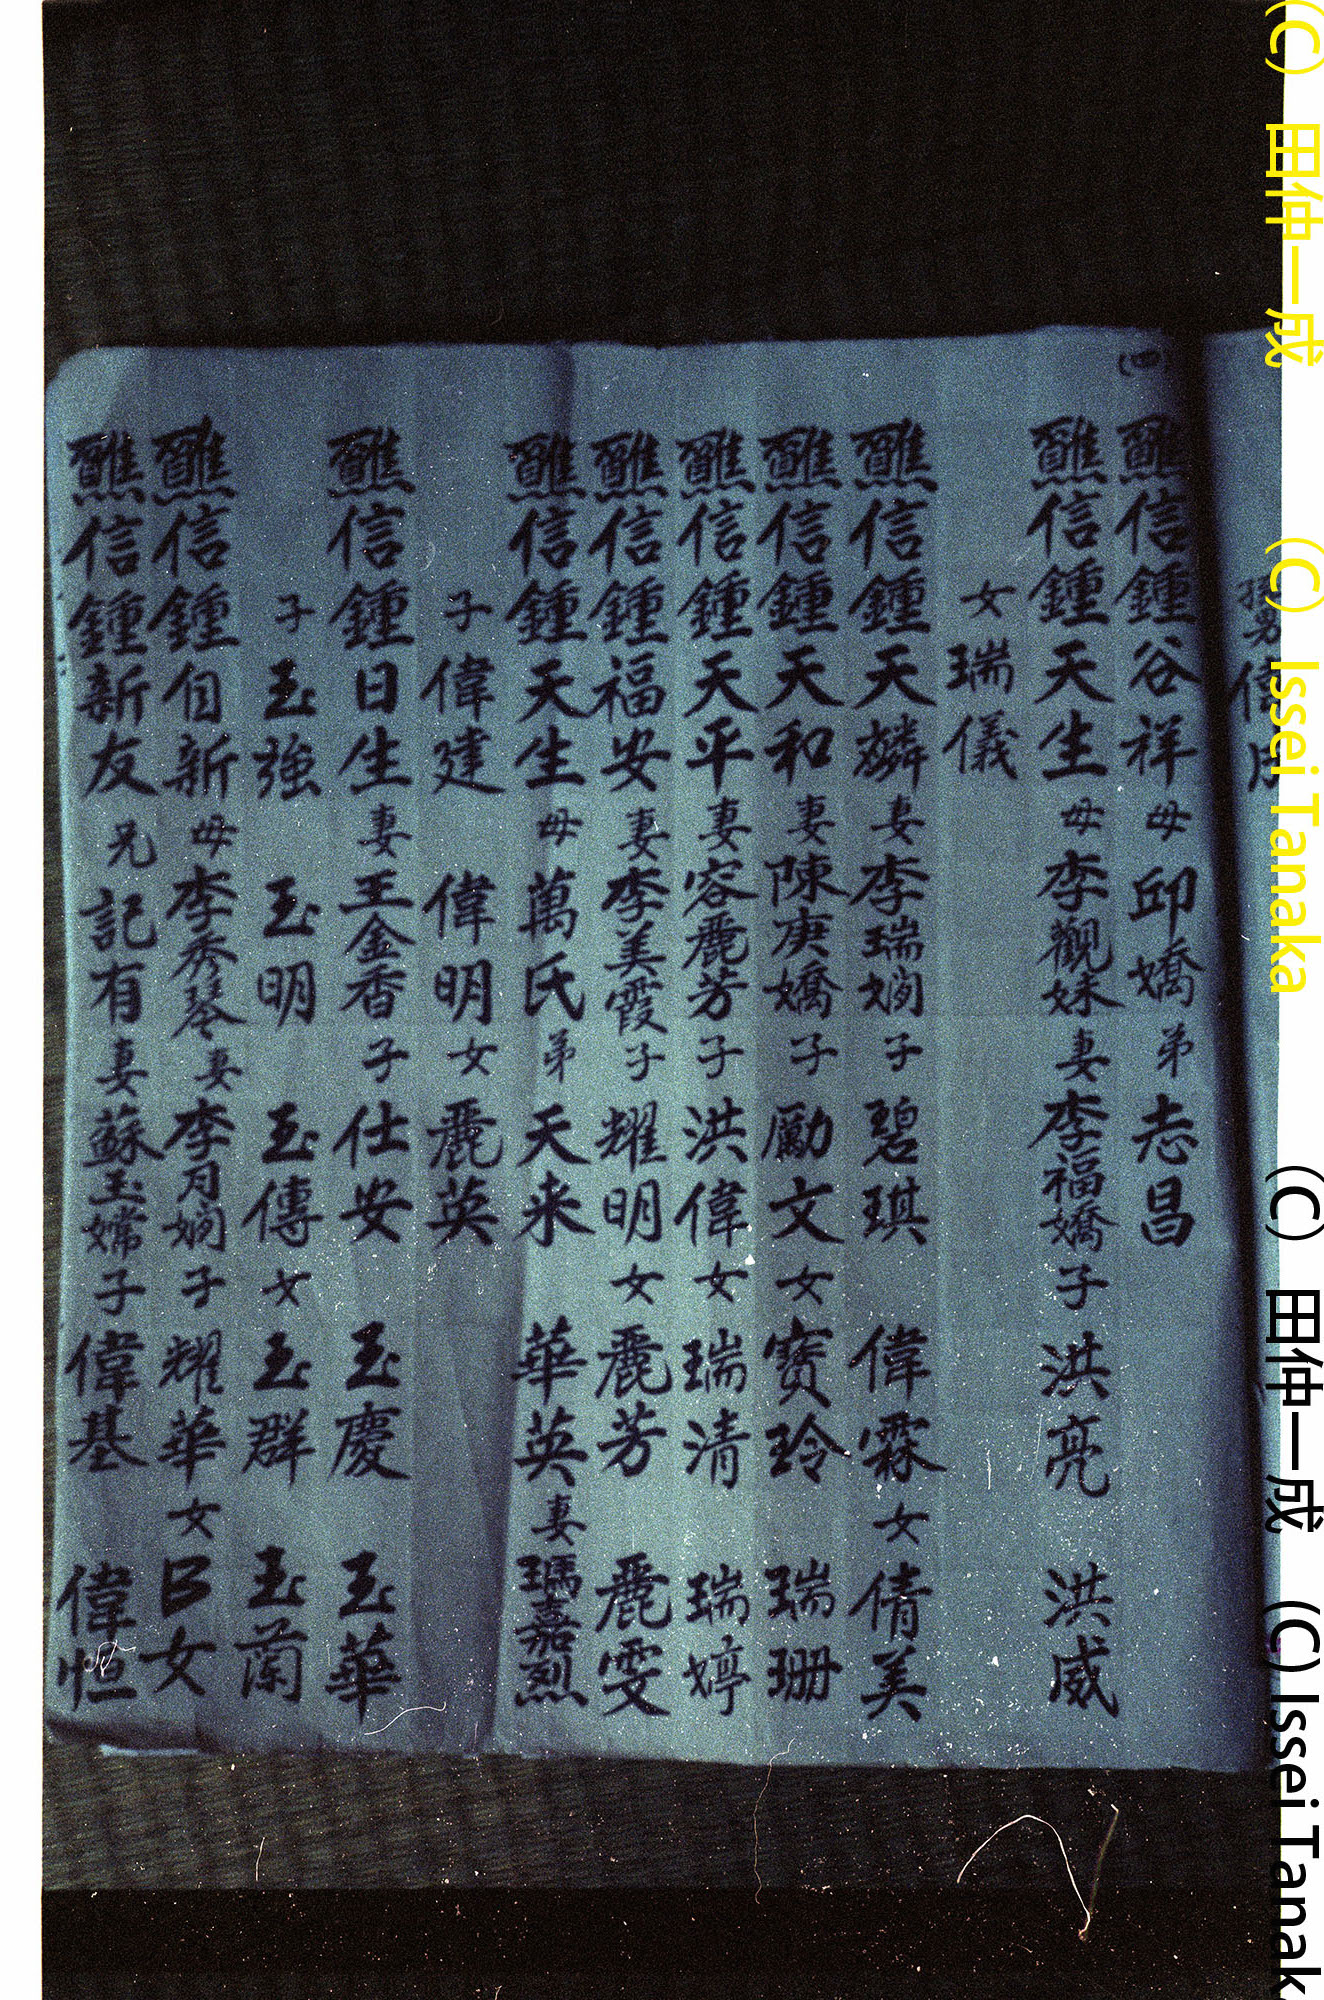 孫男偉
(四)
醮信鍾谷祥 母 邱嬌 弟 志昌
醮信鍾天生 母 李觀妹 妻 李福嬌 子 洪亮 洪威
女 瑞儀
醮信鍾天麟 妻 李瑞嫻 子 碧琪 偉霖 女 倩美
醮信鍾天和 妻 陳庚嬌 子 勵文 女 寶玲 瑞珊
醮信鍾天平 妻 容麗芳 子 洪偉 女 瑞清 瑞婷
醮信鍾福安 妻 李美霞 子 耀明 女 麗芳 麗雯
醮信鍾天生 母 萬氏 弟 天来 華英 妻 瑪嘉烈
子 偉建 偉明 女 麗英
醮信鍾日生 妻 王金香 子 仕安 玉慶 玉華
子 玉強 玉明 玉傳 女 玉群 玉蘭
醮信鍾自新 母 李秀琴 妻 李月嫻 子 耀華 女 B女
醮信鍾新友 兄 記有 妻 蘇玉嫦 子 偉基 偉恒
(C) 田仲一成 (C) Issei Tanaka
(C) 田仲一成 (C) Issei Tanak